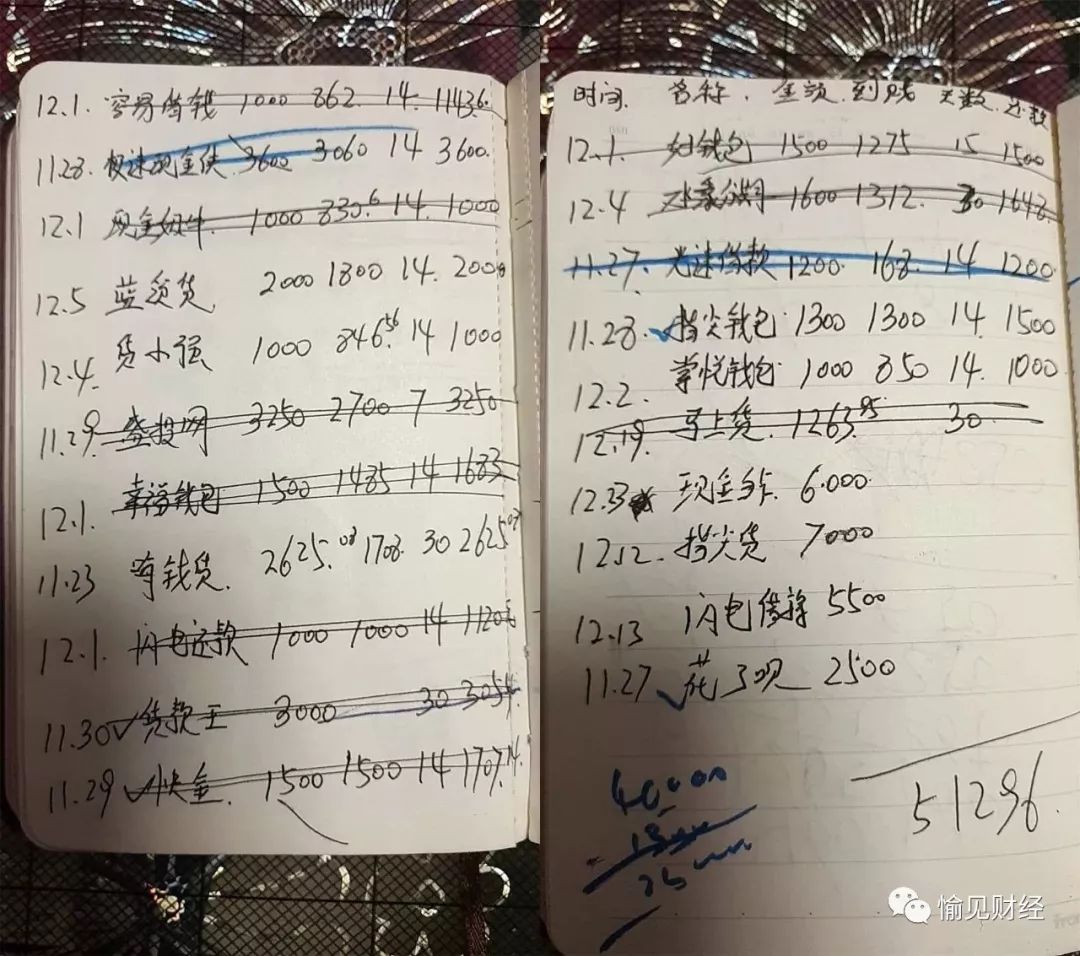 12.1. 容易借钱 1000 862. 14. 11436.
11.28. 极速现金侠 3600 3060 14 3600.
12.1 现金奶牛. 1000 830.6 14. 1000
12.5 蓝领贷. 2000 1800 14. 2000
12.4. 贷小强 1000 846.56 14 1000
11.29. 盛投网 3250 2700 7 3250
12.1. 幸福钱包 1500 1485 14 1683
11.23 有钱贷. 2625.08 1708. 30 2625.07
12.1. 闪电还款 1000 1000 14 1120
11.30 贷款王 3000 30 3054.
11.29 快金. 1500 1500 14 1707.14
时间. 名称. 金额. 到账 天数. 还款
12.1. 如钱包 1500 1275 15 1500
12.4 分期 1600 1312. 30 1648
11.27. 光速借款 1200. 168. 14 1200
11.28. 指尖钱包. 1300 1300 14 1500
12.2. 掌悦钱包. 1000 850 14. 1000
12.19. 马上贷. 1263.95 30
12.3 现金 6.000.
12.12. 指尖贷 7000
12.13 闪电借 5500
11.27 花了呗 2500
40000
51296.
愉见财经